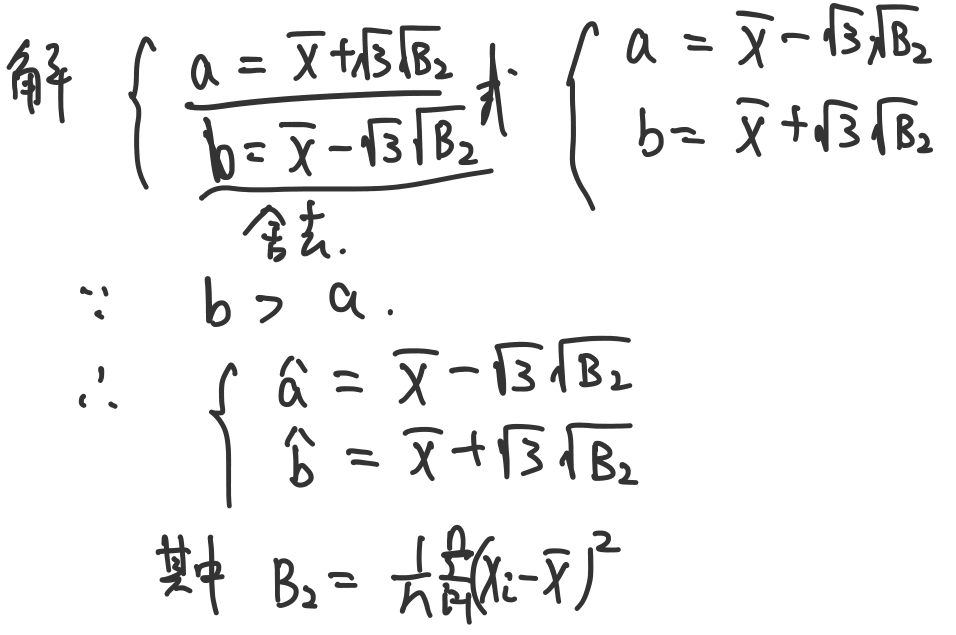 解 { a = X̄ + √3 √B₂ 或 { a = X̄ - √3 √B₂
b = X̄ - √3 √B₂ b = X̄ + √3 √B₂
舍去.
∵ b > a.
∴ { â = X̄ - √3 √B₂
b̂ = X̄ + √3 √B₂
其中 B₂ = 1/n Σⁿᵢ₌₁ (Xᵢ - X̄)²